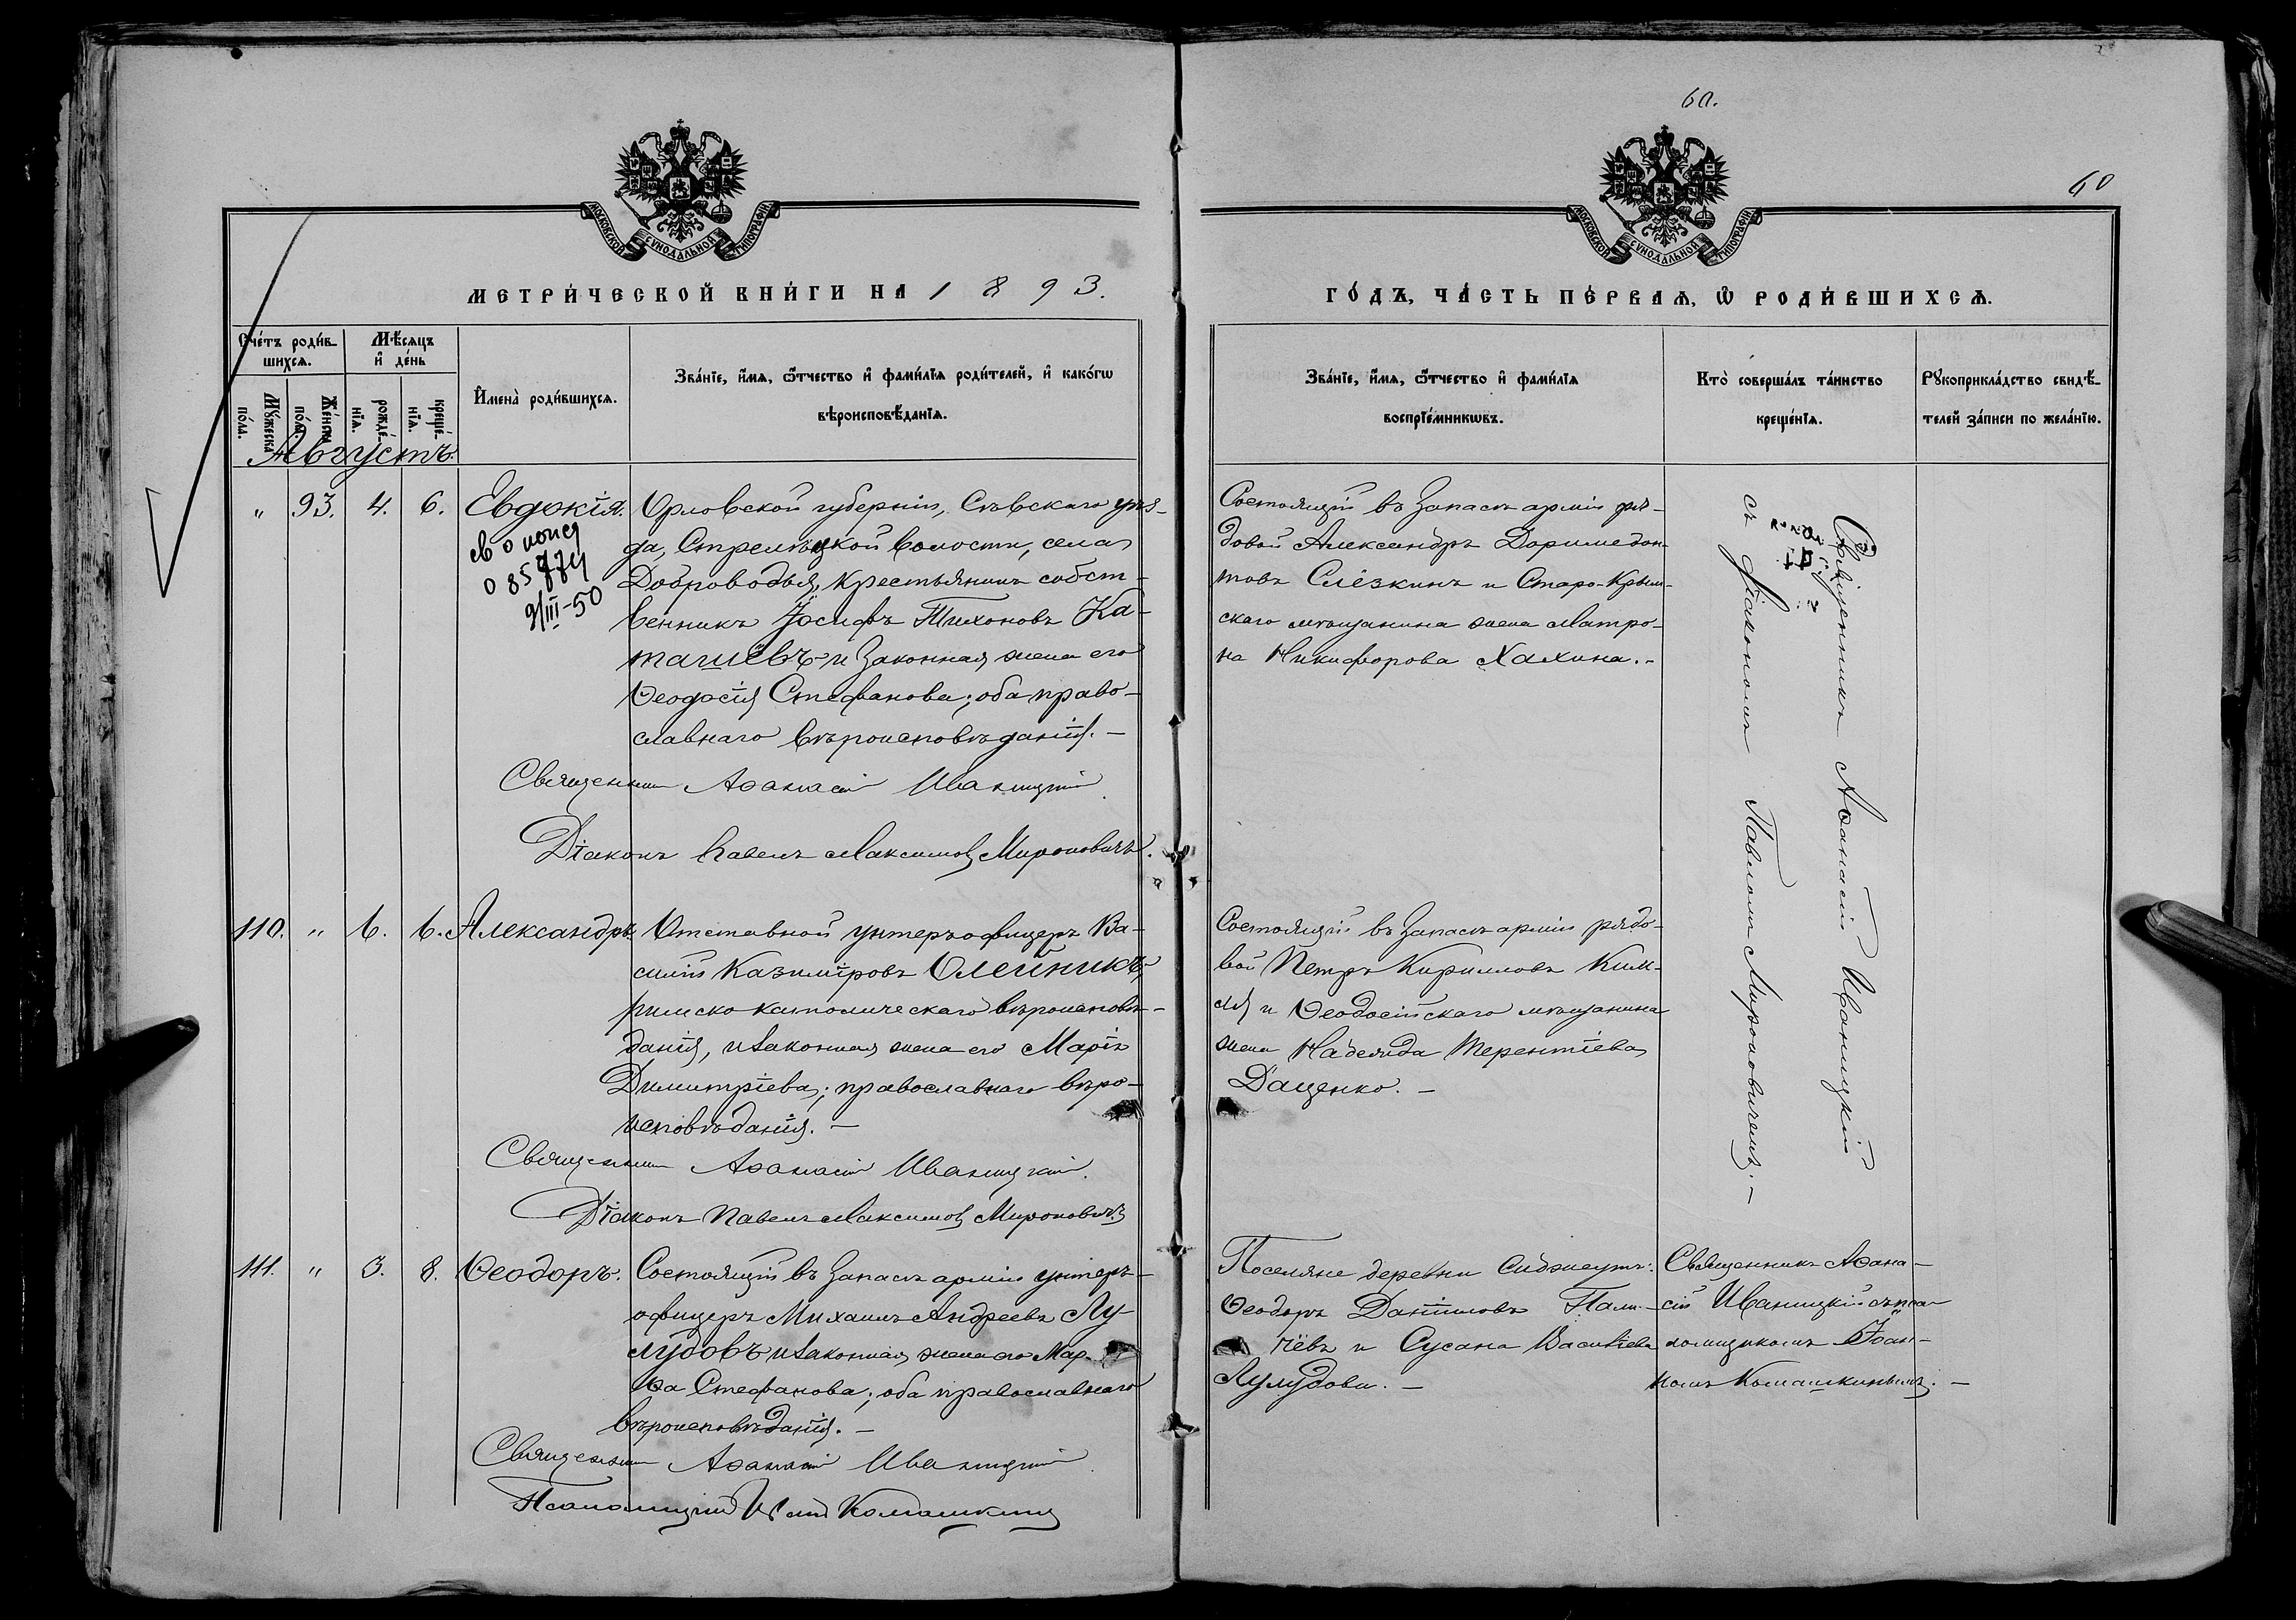 60.
60
МОСКОВСКОЙ СѴНОДАЛЬНОЙ ТИПОГРАФІИ
МОСКОВСКОЙ СѴНОДАЛЬНОЙ ТИПОГРАФІИ
МЕТРИ́ЧЕСКОЙ КНИ́ГИ НА 1893.
ГО́ДЪ, ЧА́СТЬ ПЕ́РВАѦ, Ѽ РОДИ́ВШИХСѦ.
Сче́тъ роди́в-
шихсѧ.
Мѣ́сѧцъ
и҆ де́нь
Мꙋ́жеска
по́ла.
Же́нска
по́ла.
рожде́-
нїѧ.
креще́-
нїѧ.
И҆мена̀ роди́вшихсѧ.
Зва́нїе, и҆́мѧ, ѻ҆́тчество и҆ фами́лїѧ роди́телей, и҆ како́гѡ
вѣроисповѣ́данїѧ.
Зва́нїе, и҆́мѧ, ѻ҆́тчество и҆ фами́лїѧ
воспрїе́мникѡвъ.
Кто̀ соверша́лъ та́инство
креще́нїѧ.
Рꙋкоприкла́дство свидѣ́-
телей за́писи по жела́нїю.
Августъ.
" 93. 4. 6. Евдокія.
0 85774
9/III-50
Орловской губерніи, Сѣвскаго уѣз-
да, Стрелѣцкой волости, села
Доброводья, крестьянинъ собст-
венникъ Іосифъ Тихоновъ Ка-
ташёвъ и законная жена его
Ѳеодосія Стефанова; оба право-
славнаго вѣроисповѣданія. —
Священникъ Аѳанасій Иваницкій
Діаконъ Павелъ Максимов Мироновичъ.
Состоящій въ запасѣ арміи ря-
довой Александръ Доримедон-
товъ Слёзкинъ и Старо-Крым-
скаго мѣщанина жена Матро-
на Никифорова Халина. -
Священникъ Аѳанасій Иваницкій
съ діакономъ Павломъ Мироновичемъ. —
110. " 6. 6. Александръ
Отставной унтеръ-офицеръ Ва-
силій Казиміровъ Олейникъ,
римско католическаго вѣроисповѣ-
данія, и законная жена его Марія
Димитріева; православнаго вѣро-
исповѣданія. —
Священникъ Аѳанасій Иваницкій.
Діаконъ Павелъ Максимов Мироновичъ
Состоящій въ запасѣ арміи рядо-
вой Петръ Кирилловъ Ким-
ля и Ѳеодосійскаго мѣщанина
жена Надежда Терентіева
Даценко. —
111. " 3. 8. Ѳеодоръ.
Состоящій въ запасѣ арміи унтеръ-
офицеръ Михаилъ Андреевъ Лу-
лудовъ и законная жена его Мар-
ѳа Стефанова; оба православнаго
вѣроисповѣданія. —
Священникъ Аѳанасій Иваницкій
Псаломщикъ Комашкинъ
Поселяне деревни
Ѳеодоръ Даніиловъ
чёвъ и Сусана Васильева
Лулудови. —
Священникъ Аѳана-
сій Иваницкій съ пса-
ломщикомъ Іоан-
номъ Комашкинымъ. —